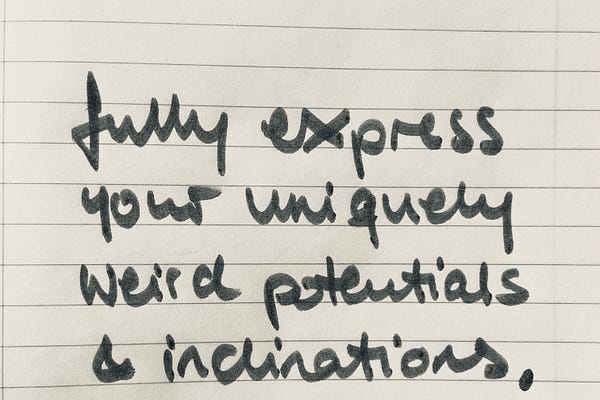 fully express
your uniquely
weird potentials
& inclinations.